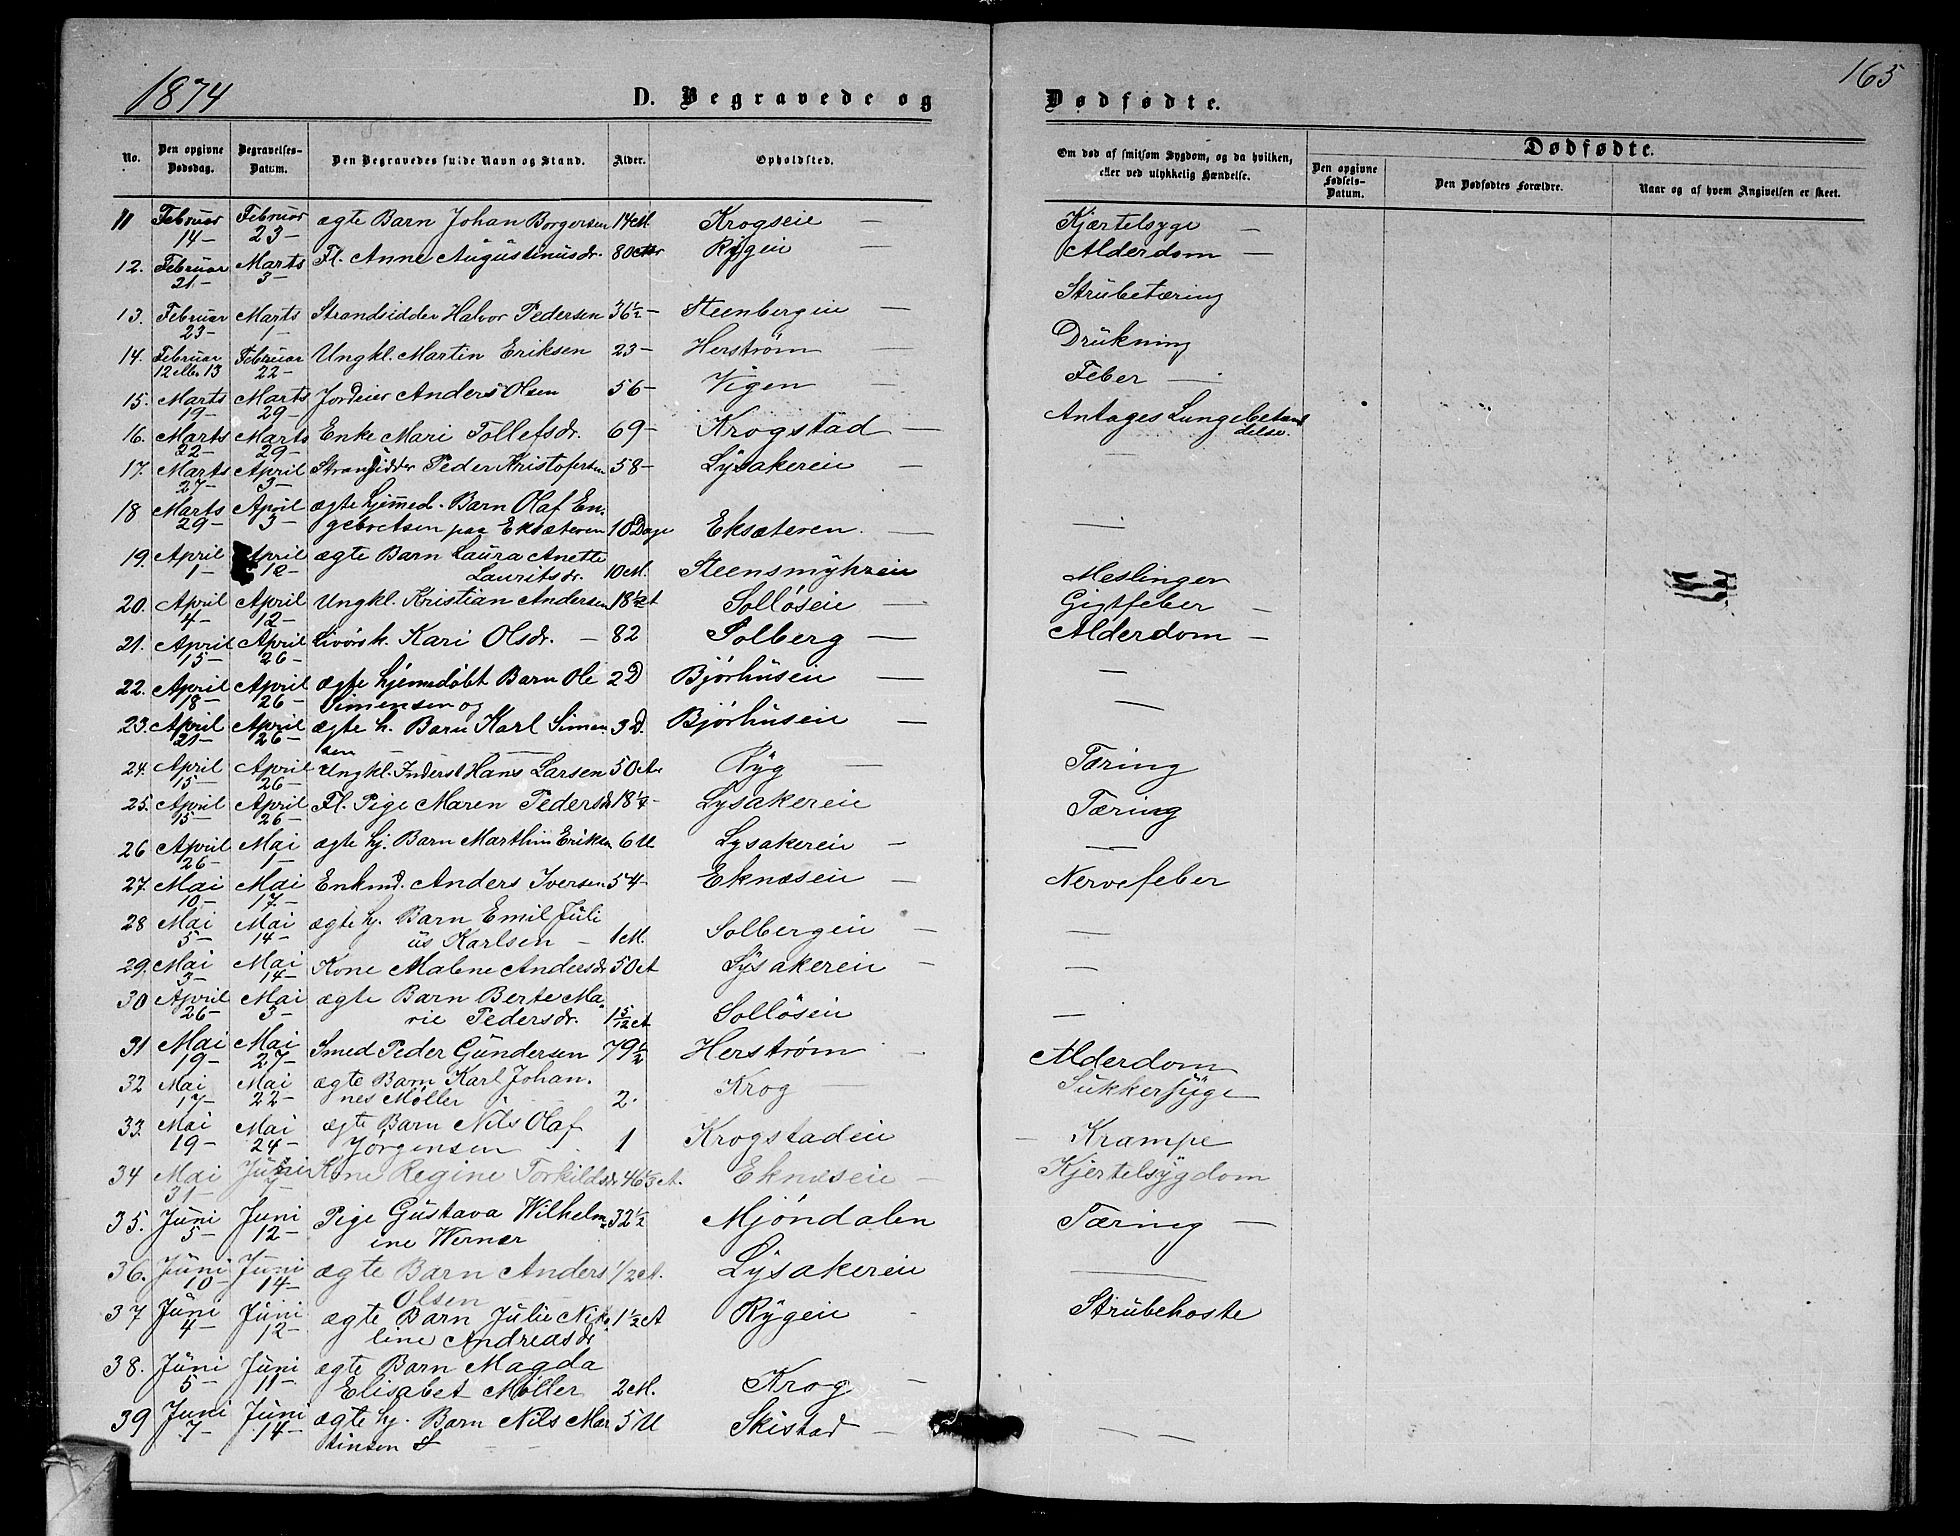 1874
D. Begravede og Dødfødte.
165
No. Den opgivne Dødsdag. Begravelses-Datum. Den Begravedes fulde Navn og Stand. Alder. Opholdsted. Om død af smitsom Sygdom, og da hvilken, eller ved ulykkelig Hændelse. Dødfødte. Den opgivne Fødsels-Datum. Den Dødfødtes Forældre. Naar og af hvem Angivelsen er skeet.
11 Februar 14- Februar 23- ægte Barn Johan Borgersen 14 M. Krogseie — Kjærtelsyge —
12. Februar 21- Marts 3- Fl. Anne Augustinusdr. 80 Rygeie — Alderdom —
13. Februar 23- Marts 1- Strandsidder Halvor Pedersen 36½- Steenbergeie — Strubetæring
14. Februar 12 ell. 13 Februar 22- Ungkl. Martin Eriksen 23- Herstrøm — Drukning
15. Marts 19- Marts 29- Jordeier Anders Olsen 56- Vigen — Feber —
16. Marts 22- Marts 29- Enke Mari Tollefsdr. 69- Krogstad — Antages Lungebetændelse.
17. Marts 27- April 3- Strandsidder Peder Kristofersen 58- Lysakereie — —
18 Marts 29- April 3- ægte hjemmed. Barn Olaf En-
gebretsen paa Eksæteren 10 Dage Eksæteren. — —
19. April 1- April 12- ægte Barn Laura Anette
Lauritsdr. 10 M. Steensmyhreie Meslinger
20. April 4- April 12- Ungkl. Kristian Andersen 18½ A Solløseie — Gigtfeber —
21. April 15- April 26- Livørsk. Kari Olsdr. — 82 Solberg — Alderdom —
22. April 18- April 26- ægte hjemmedøbt Barn Ole 2 D Bjørhuseie — —
Simensen og
23. April 21- April 26- ægte h. Barn Karl Simen 3 D. Bjørhuseie — —
sen
24. April 15- April 26- Ungkl. Inderst Hans Larsen 50 A. Ryg — Tæring
25. April 15- April 26- Fl. Pige Maren Pedersdr 18¼- Lysakereie Tæring
26 April 26- Mai 1- ægte hj. Barn Marthin Eriksen 6 U Lysakereie — —
27. Mai 10- Mai 17- Enkmd. Anders Iversen 54- Eknæseie — Nervefeber
28 Mai 5- Mai 14- ægte hj. Barn Emil Juli
us Karlsen — 1 M. Solbergeie — —
29. Mai 3- Mai 14- Kone Malene Andersdr 50 A Lysakereie — —
30 April 26- Mai 3- ægte Barn Berte Ma-
rie Pedersdr. 1 5/12 A Solløseie —
31 Mai 19- Mai 27- Smed Peder Gundersen 79½ Herstrøm — Alderdom
32 Mai 17- Mai 22- ægte Barn Karl Johan-
nes Møller 2. Krog Sukkersyge
33. Mai 19- Mai 24- ægte Barn Nils Olaf
Jørgensen 1 Krogstadeie — Krampe
34 Mai 31- Juni 7- Kone Regine Torkildsdr 46⅓ A. Eknæseie — Kjertelsygdom
35. Juni 5- Juni 12- Pige Gustava Wilhelm-
ine Werner 32½ Mjøndalen Tæring —
36. Juni 10- Juni 14- ægte Barn Anders 1/2 A. Lysakereie —
Olsen
37 Juni 4- Juni 12- ægte Barn Julie Niko-
line Andreasdr 1½ A Rygeie — Strubehoste
38. Juni 5- Juni 11- ægte Barn Magda
Elisabet Møller 2 M. Krog —
39 Juni 7- Juni 14- ægte hj. Barn Nils Mar 5 U Skistad — — —
tinsen